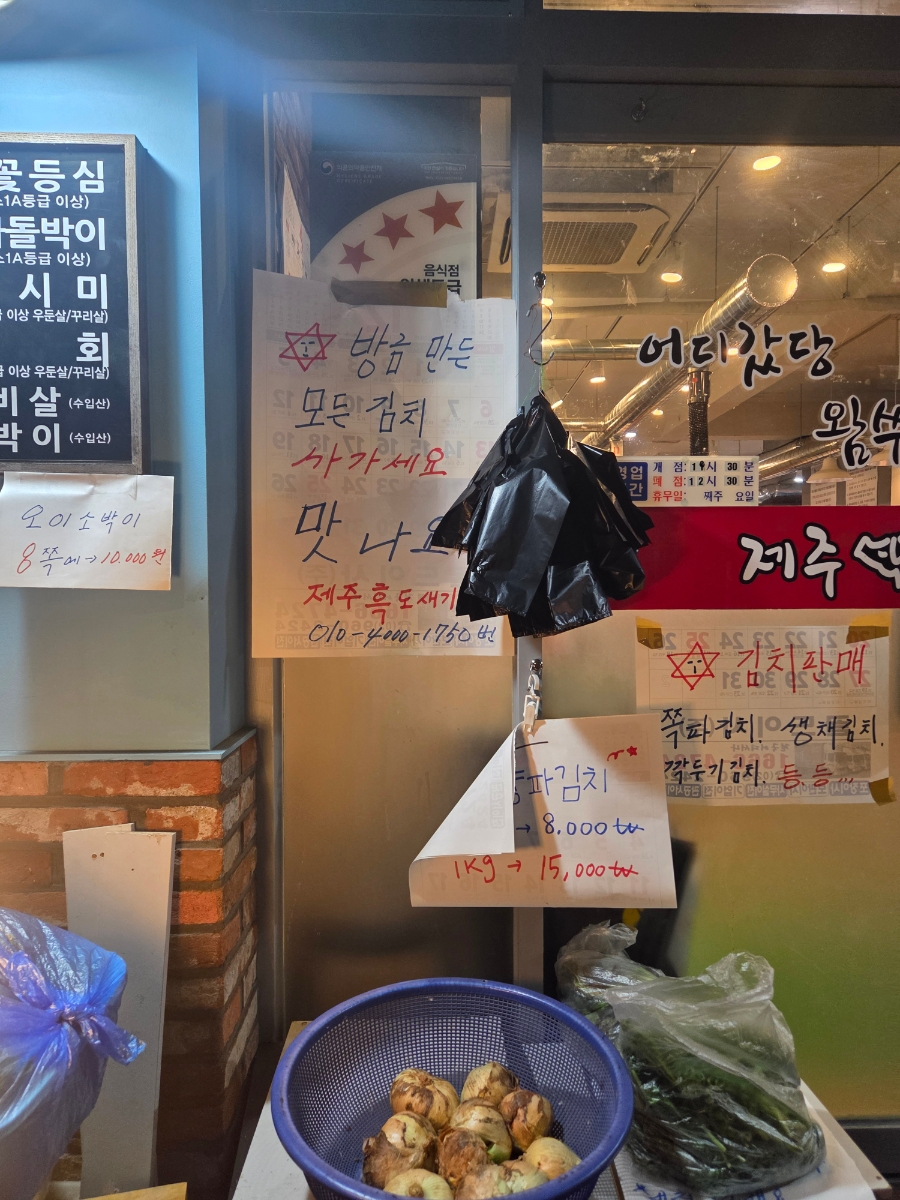 꽃등심
1A등급 이상)
돌박이
1A등급 이상)
시미
이상 우둔살/꾸리살)
회
이상 우둔살/꾸리살)
비살 (수입산)
박이 (수입산)
오이소박이
8쪽에→10.000원
음식점
방금 만든
모든 김치
사가세요
맛나요
제주흑도새기
010-4000-1750번
어디갔당
왐쑤
영업
개 점:19시 30분
폐 점:12시 30분
휴무일: 째주 요일
제주
김치판매
쪽파김치. 생채김치.
깍두기김치. 등.등...
파김치
→ 8.000₩
1Kg → 15,000₩